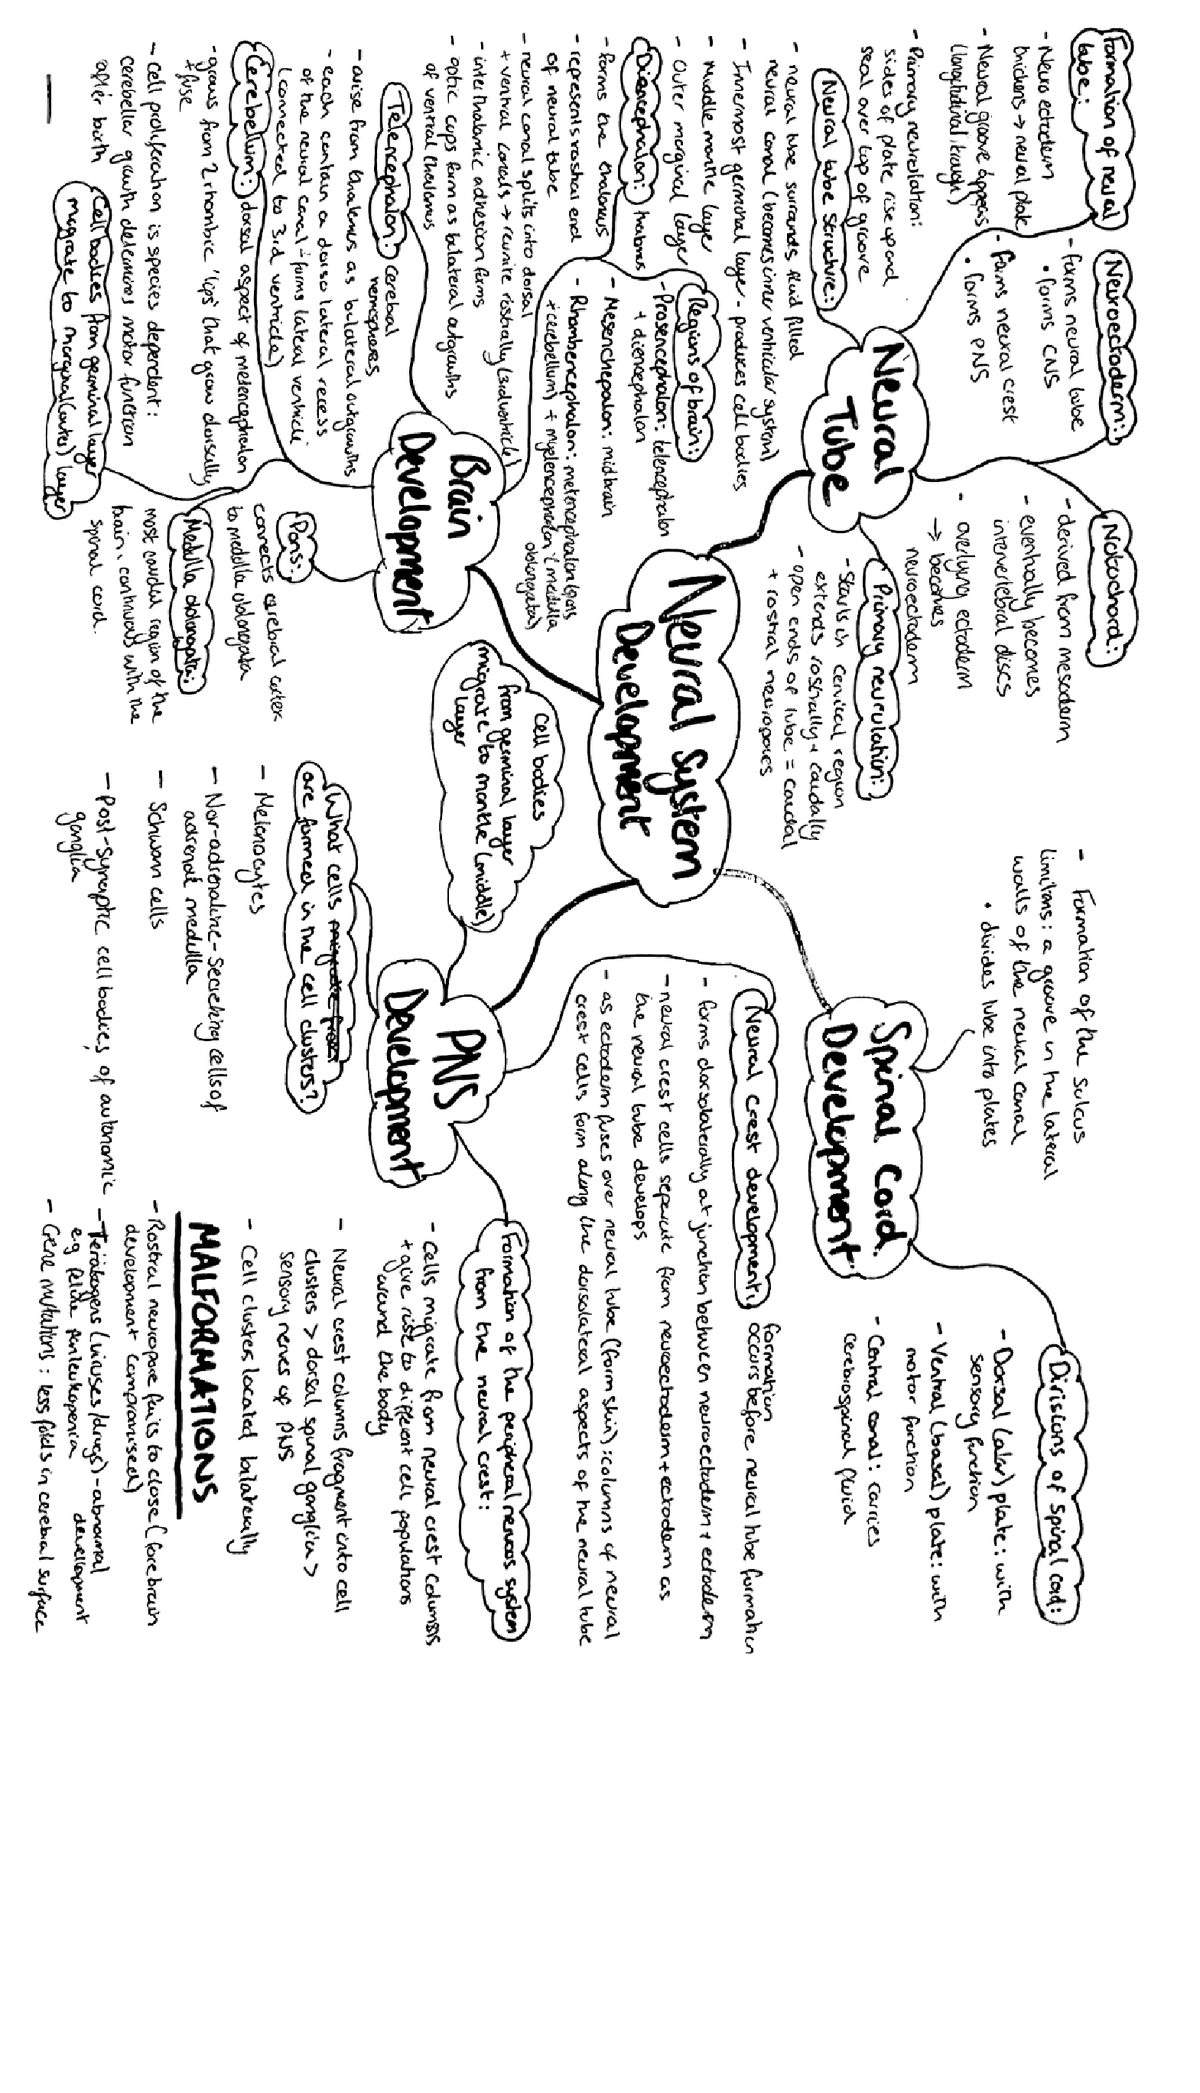 Neural System
Development
Neural
Tube
Formation of neural
tube:
- Neuroectoderm
thickens → neural plate
- Neural groove appears
(longitudinal trough)
- Primary neurulation:
sides of plate rise up and
seal over top of groove
Neuroectoderm:
- forms neural tube
• forms CNS
- forms neural crest
• forms PNS
Notochord:
- derived from mesoderm
- eventually becomes
intervertebral discs
- overlying ectoderm
→ becomes
neuroectoderm
Primary neurulation:
- starts in cervical region
extends rostrally + caudally
- open ends of tube = caudal
+ rostral neuropores
Neural tube structure:
- neural tube surrounds fluid filled
neural canal (becomes inner ventricular system)
- Innermost germinal layer - produces cell bodies
- Middle mantle layer
- Outer marginal layer
Brain
Development
Regions of brain:
- Prosencephalon: telencephalon
+ diencephalon
- Mesencephalon: midbrain
- Rhombencephalon: metencephalon (pons
+ cerebellum) + myelencephalon (medulla
oblongata)
Diencephalon: thalamus
- forms the thalamus
- represents rostral end
of neural tube
- neural canal splits into dorsal
+ ventral canals → reunite rostrally (3rd ventricle)
- interthalamic adhesion forms
- optic cups form as bilateral outgrowths
of ventral thalamus
Telencephalon: cerebral
hemispheres
- arise from thalamus as bilateral outgrowths
- each contain a dorso lateral recess
of the neural canal + forms lateral ventricle
(connected to 3rd ventricle)
Cerebellum: dorsal aspect of metencephalon
- grows from 2 rhombic 'lips' that grow dorsally
+ fuse
- cell proliferation is species dependent:
cerebellar growth determines motor function
after birth
Cell bodies from germinal layer
migrate to marginal (outer) layer
Pons:
connects cerebral cortex
to medulla oblongata
Medulla oblongata:
most caudal region of the
brain, continuous with the
spinal cord.
Spinal Cord
Development
- Formation of the sulcus
limitans: a groove in the lateral
walls of the neural canal
• divides tube into plates
Divisions of spinal cord:
- Dorsal (alar) plate: with
sensory function
- Ventral (basal) plate: with
motor function
- Central canal: carries
cerebrospinal fluid
PNS
Development
Cell bodies
from germinal layer
migrate to mantle (middle)
layer
Neural crest development: formation
occurs before neural tube formation
- forms dorsolaterally at junction between neuroectoderm + ectoderm
- neural crest cells separate from neuroectoderm + ectoderm as
the neural tube develops
- as ectoderm fuses over neural tube (form skin): columns of neural
crest cells form along the dorsolateral aspects of the neural tube
Formation of the peripheral nervous system
from the neural crest:
- Cells migrate from neural crest columns
+ give rise to different cell populations
around the body
- Neural crest columns fragment into cell
clusters > dorsal spinal ganglia >
sensory nerves of PNS
- Cell clusters located bilaterally
What cells
are formed in the cell clusters?
- Melonocytes
- Nor-adrenaline-secreting cells of
adrenal medulla
- Schwann cells
- Post-synaptic cell bodies of autonomic
ganglia
MALFORMATIONS
- Rostral neuropore fails to close (forebrain
development compromised)
- Teratogens (viruses/drugs) - abnormal
development
eg feline panleukopenia
- Gene mutations: less folds in cerebral surface